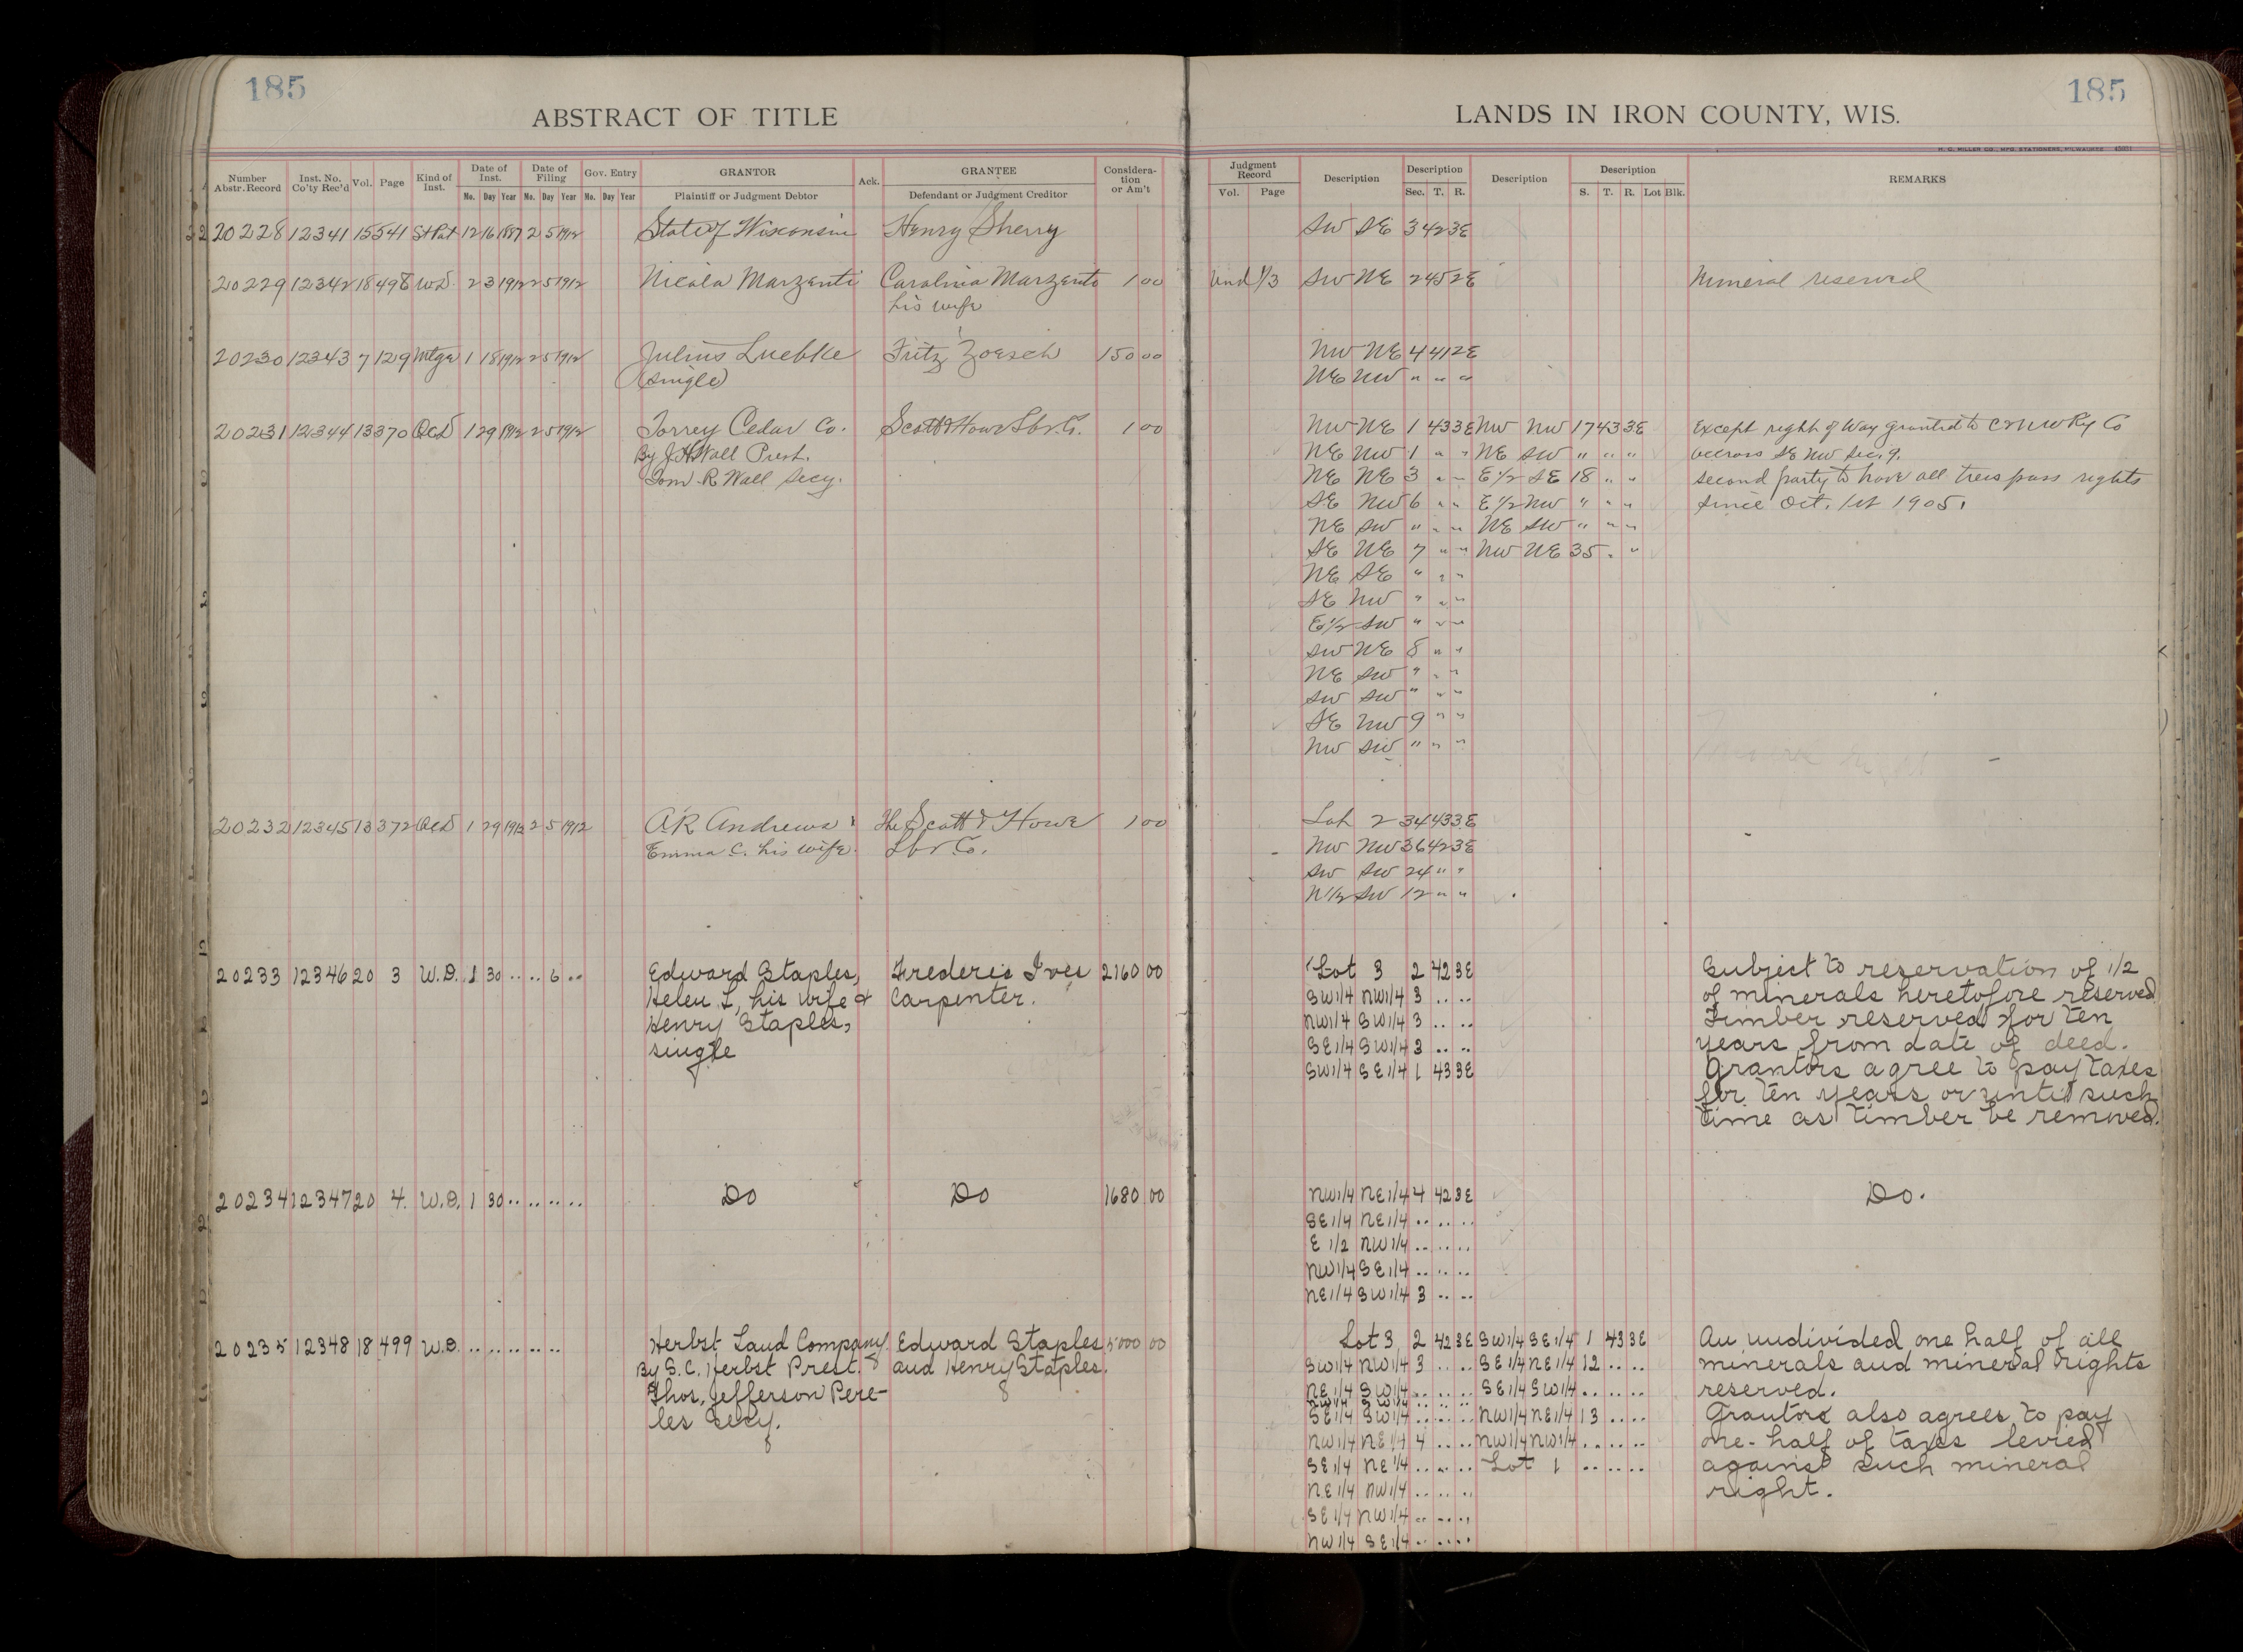 185
185
ABSTRACT OF TITLE
LANDS IN IRON COUNTY, WIS.
H. C. MILLER CO., MFG. STATIONERS, MILWAUKEE
Number Abstr. Record | Inst. No. Co'ty Rec'd | Vol. | Page | Kind of Inst. | Date of Inst. Mo. Day Year | Date of Filing Mo. Day Year | Gov. Entry Mo. Day Year | GRANTOR Plaintiff or Judgment Debtor | Ack. | GRANTEE Defendant or Judgment Creditor | Considera-tion or Am't | Judgment Record Vol. Page | Description | Description Sec. T. R. | Description | Description S. T. R. Lot Blk. | REMARKS
20228 12341 15 541 St Pat 12 16 1887 2 5 1912 State of Wisconsin Henry Sherry SW SE 3 42 3E
20229 12342 18 498 WD 2 3 1912 2 5 1912 Nicola Marzenti Carolina Marzenti 1 00 Und 1/3 SW NE 2 45 2E Mineral reserved
his wife
20230 12343 7 129 Mtge 1 18 1912 2 5 1912 Julius Luebke Fritz Zoesch 150 00 NW NE 4 41 2E
(single) NE NW " " "
20231 12344 13 370 QCD 1 29 1912 2 5 1912 Torrey Cedar Co. Scott & Howe Lbr. Co. 1 00 NW NE 1 43 3E NW NW 17 43 3E Except right of Way granted to C & NW Ry Co
By J.H. Wall Prest. NE NW 1 " " NE SW " " " accross SE NW Sec. 9.
Tom R Wall Secy. NE NE 3 " " E 1/2 SE 18 " " second party to have all tresspass rights
SE NW 6 " " E 1/2 NW " " " since Oct. 1st 1905.
NE SW " " " NE SW " " "
SE NE 7 " " NW NE 35 " "
NE SE " " "
SE NW " " "
E 1/2 SW " " "
SW NE 8 " "
NE SW " " "
SW SW " " "
SE NW 9 " "
NW SW " " "
20232 12345 13 372 QCD 1 29 1912 2 5 1912 A R Andrews & The Scott & Howe 1 00 Lot 2 34 43 3E
Emma C. his wife. Lbr. Co. NW NW 36 42 3E
SW SW 24 " "
N 1/2 SW 12 " "
20233 12346 20 3 W.D. 1 30 .. .. 6 .. Edward Staples, Frederic Ives 2160 00 Lot 3 2 42 3E Subject to reservation of 1/2
Helen L, his wife & Carpenter. SW1/4 NW1/4 3 .. .. of minerals heretofore reserved
Henry Staples, NW1/4 SW1/4 3 .. .. Timber reserved for ten
single SE1/4 SW1/4 3 .. .. years from date of deed.
SW1/4 SE1/4 1 43 3E Grantors agree to pay taxes
for ten years or until such
time as timber be removed.
20234 12347 20 4. W.D. 1 30 .. .. .. .. Do Do 1680 00 NW1/4 NE1/4 4 42 3E Do.
SE1/4 NE1/4 .. .. ..
E 1/2 NW1/4 .. .. ..
NW1/4 SE1/4 .. .. ..
NE1/4 SW1/4 3 .. ..
20235 12348 18 499 W.D. .. .. .. .. .. .. Herbst Land Company Edward Staples 5000 00 Lot 3 2 42 3E SW1/4 SE1/4 1 43 3E An undivided one half of all
By S.C. Herbst Prest. and Henry Staples. SW1/4 NW1/4 3 .. .. SE1/4 NE1/4 12 .. .. minerals and mineral rights
Thos. Jefferson Pere- NE1/4 SW1/4 .. .. .. SE1/4 SW1/4 .. .. .. reserved.
NW1/4 SW1/4 .. .. ..
les Secy. SE1/4 SW1/4 .. .. .. NW1/4 NE1/4 13 .. .. Grantors also agrees to pay
NW1/4 NE1/4 4 .. .. NW1/4 NW1/4 .. .. .. one-half of taxes levied
SE1/4 NE1/4 .. .. .. Lot 1 .. .. .. against such mineral
NE1/4 NW1/4 .. .. .. right.
SE1/4 NW1/4 .. .. ..
NW1/4 SE1/4 .. .. ..